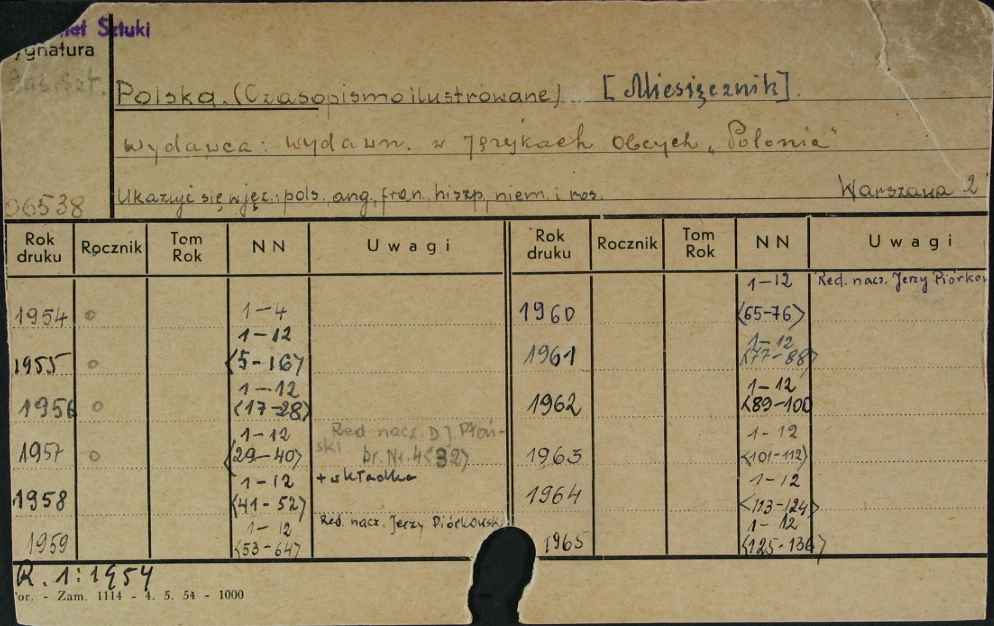 Sztuki
ygnatura
Polska. (Czasopismo ilustrowane) [Miesięcznik].
Wydawca: Wydawn. w Językach Obcych „Polonia"
06538 Ukazuje się w jęz.: pols. ang., fran. hiszp., niem. i ros. Warszawa 2
Rok druku Rocznik Tom Rok NN Uwagi Rok druku Rocznik Tom Rok NN Uwagi
1954 o 1-4 1960 1-12 <65-76> Red. nacz. Jerzy Piórkow
1955 o 1-12 <5-16> 1961 1-12 <77-88>
1956 o 1-12 <17-28> 1962 1-12 <89-100
1957 o 1-12 <29-40> Red nacz. D J. Płoń-ski pr. Nr. 4<32> 1963 1-12 <101-112>
1958 1-12 <41-52> + wkładka 1964 1-12 <113-124>
1959 1-12 <53-64> Red. nacz. Jerzy Piórkowski 1965 1-12 <125-136>
R. 1:1954
or. - Zam. 1114 - 4. 5. 54 - 1000